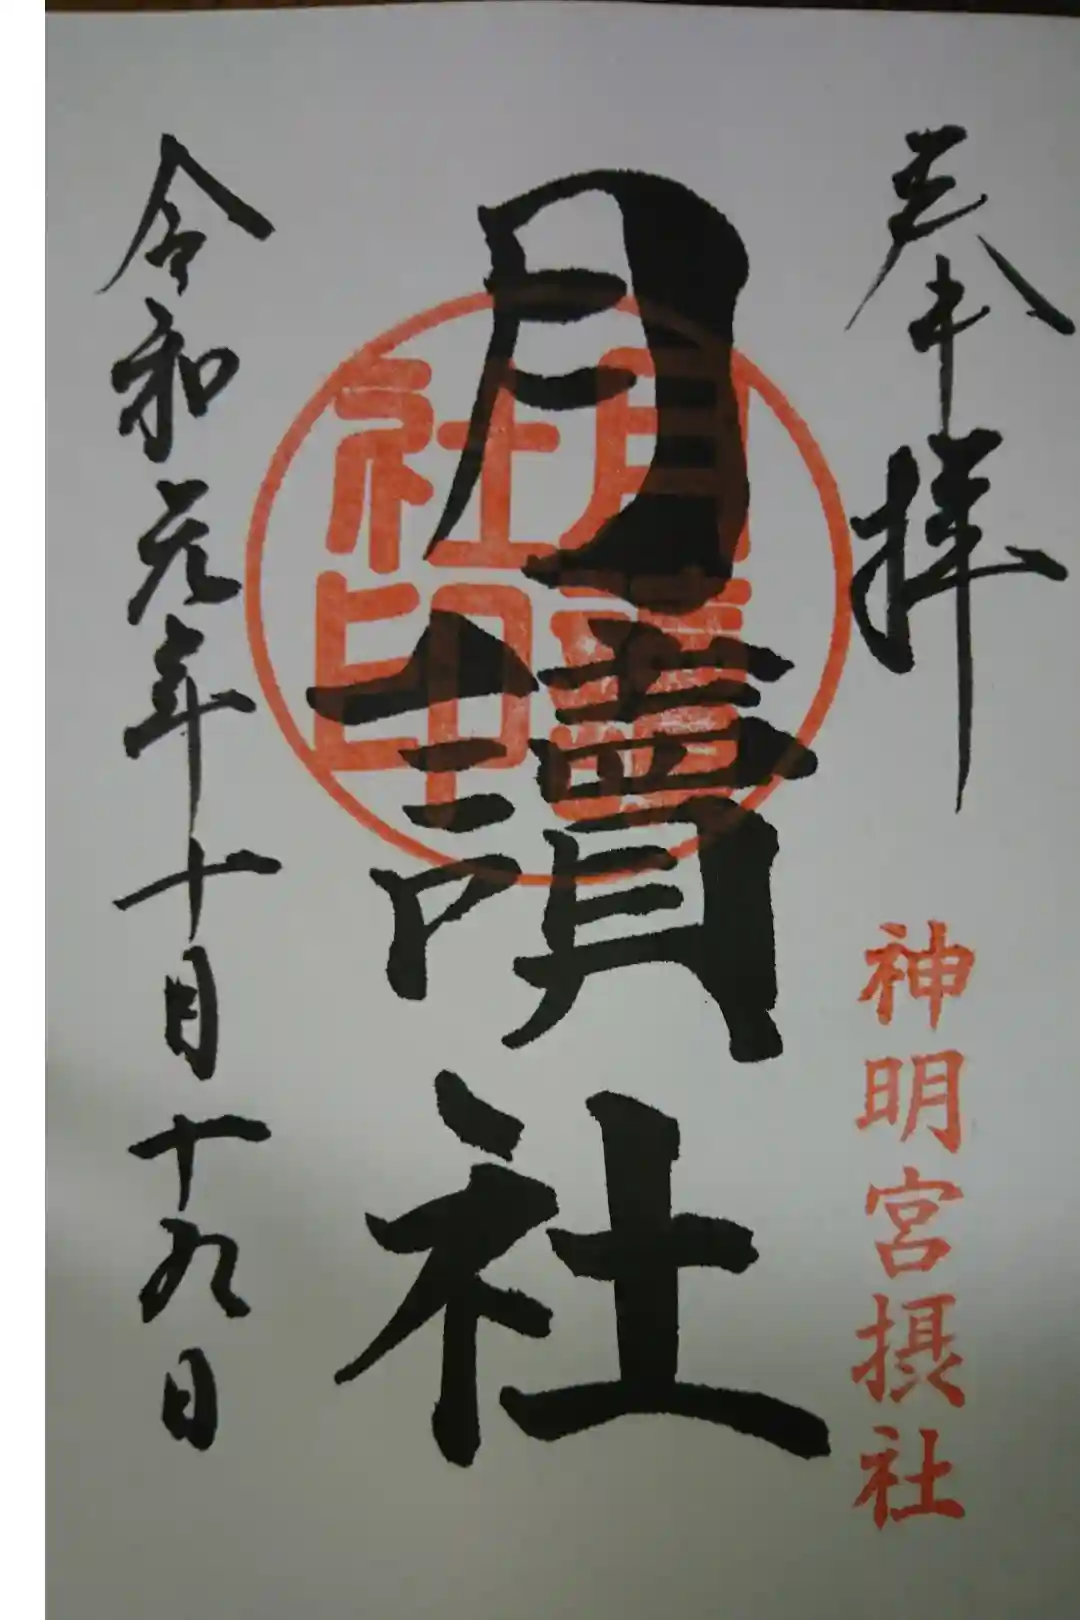 奉拝
神明宮摂社
月讀社
月讀社印
令和元年十月十九日